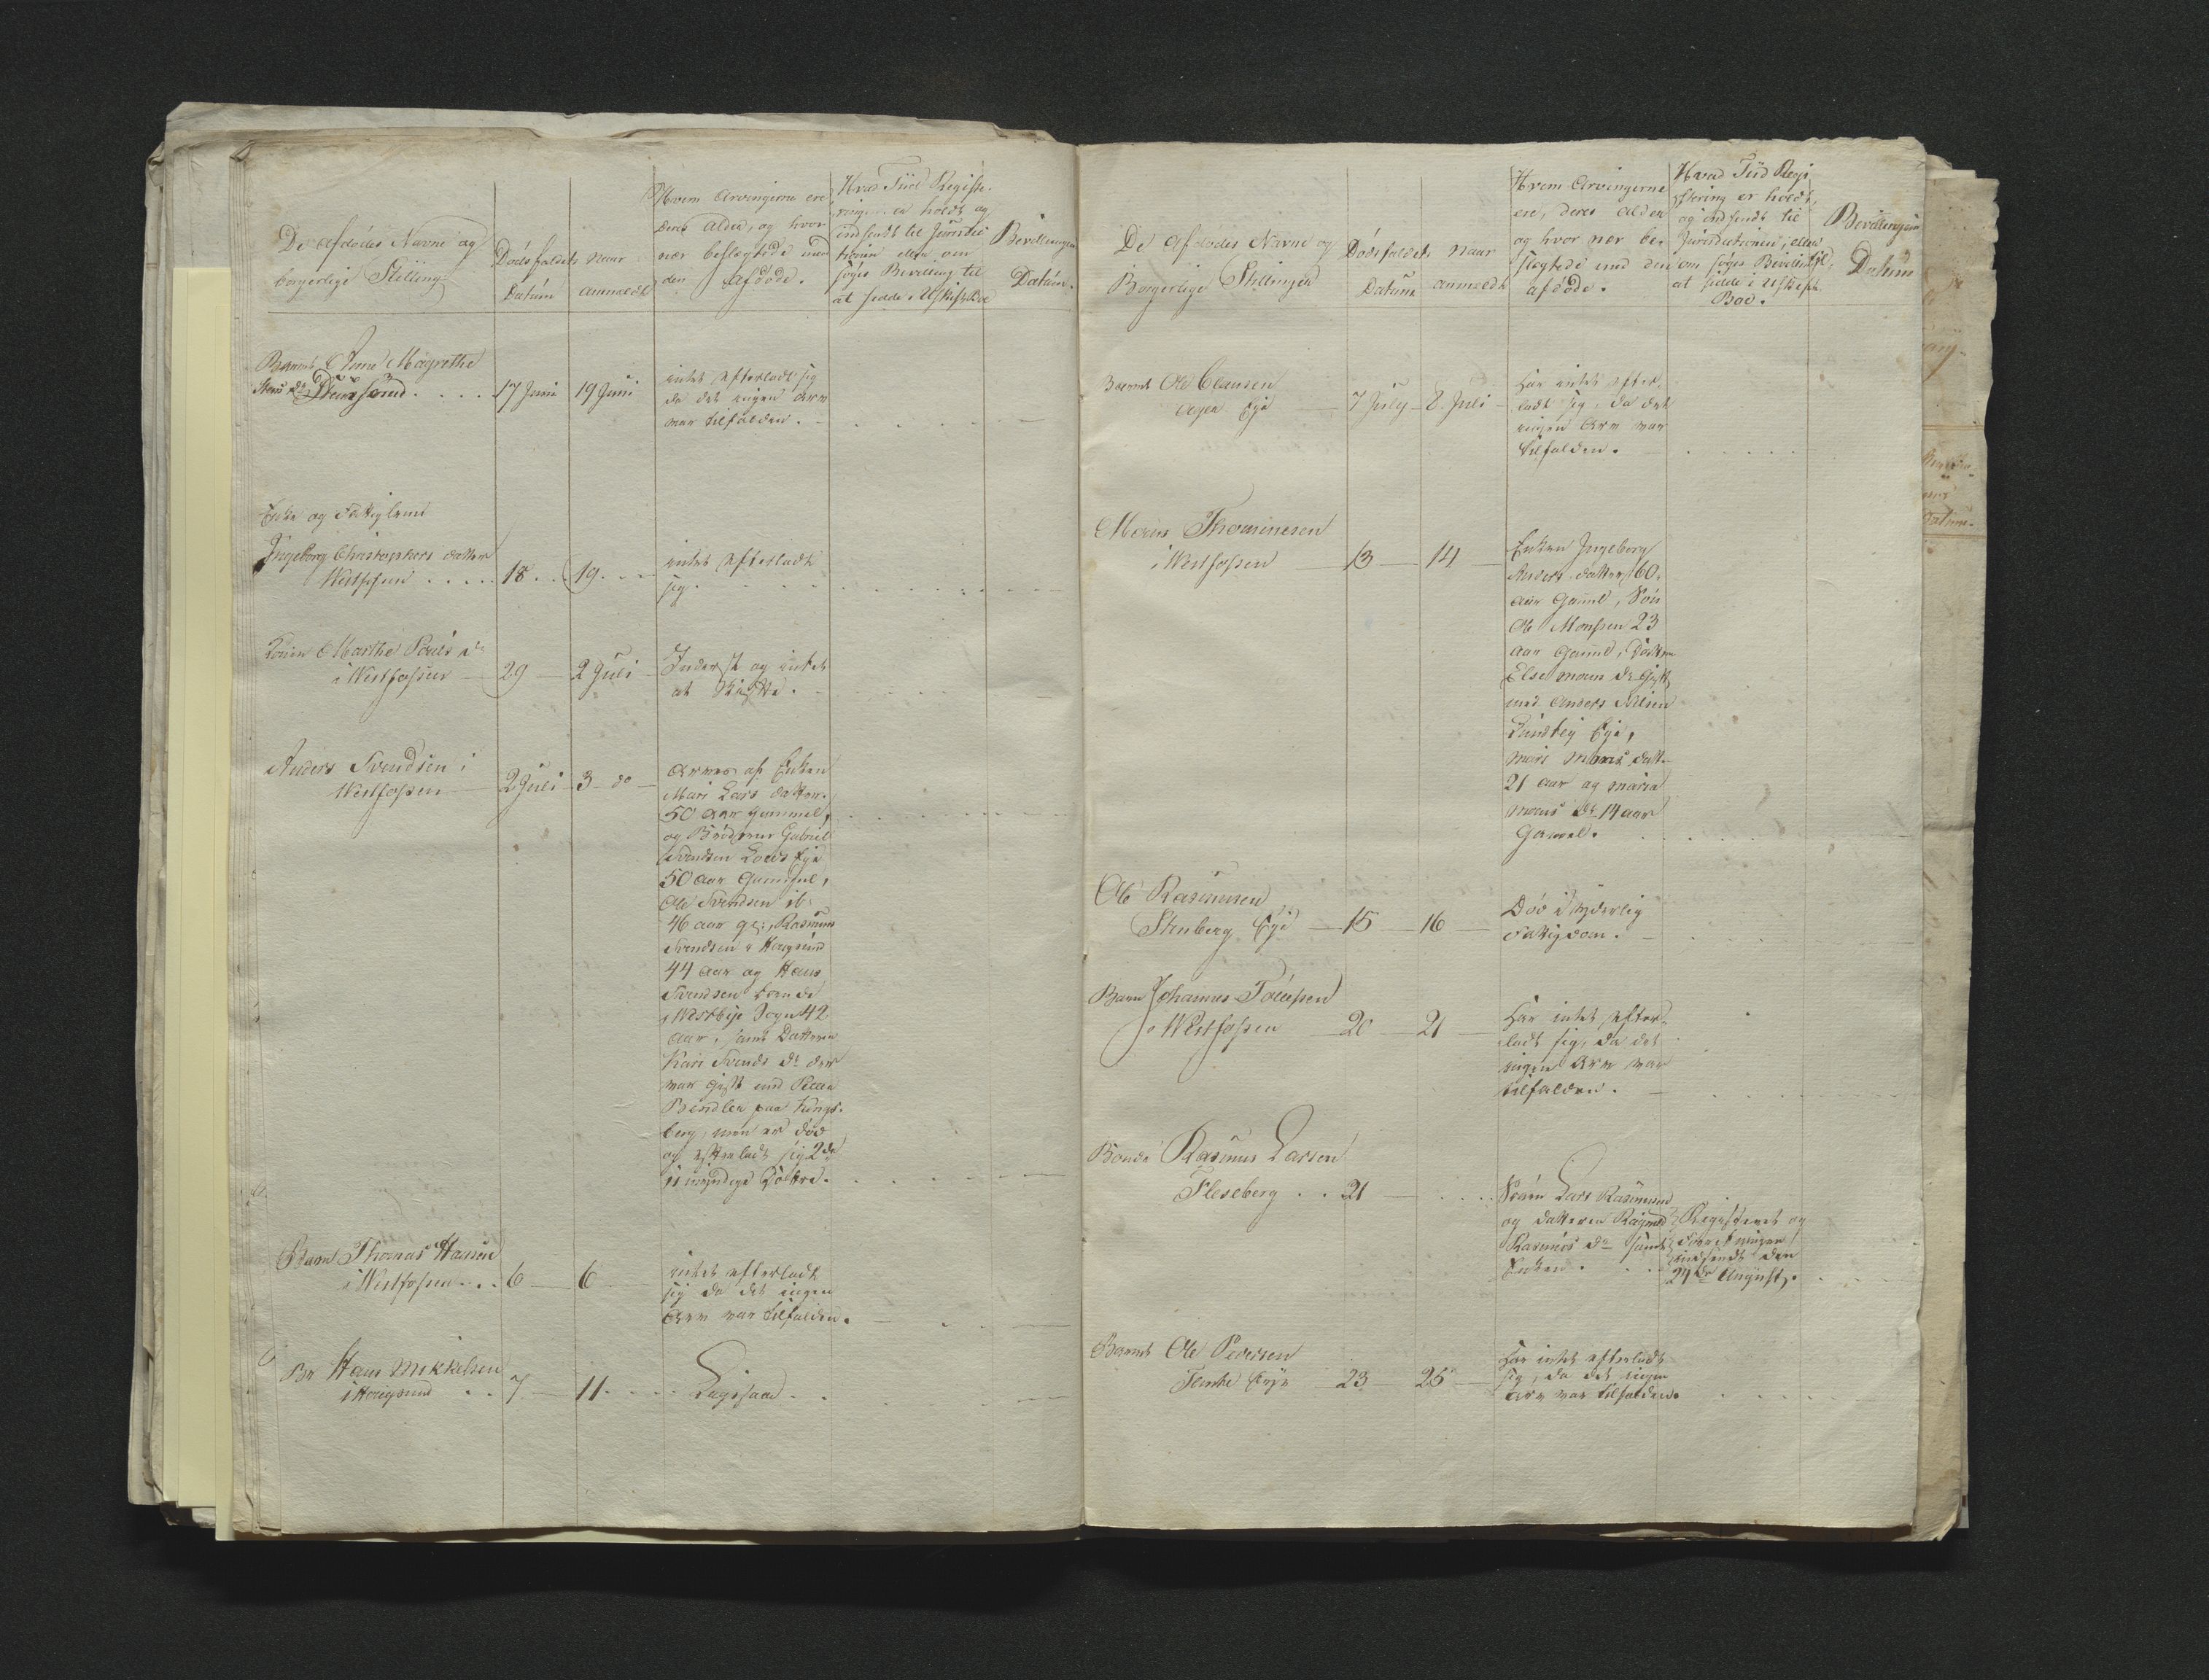 De Afdødes Navne og
borgerlige Stilling
Dødsfaldets
Datum
naar
anmeldt
Hvem Arvingerne ere
deres Alder, og hvor
nær beslægtede med
den Afdøde.
Hvad Tiid Registe-
ringen er holdt og
indsendt til Jurisdic
tionen eller om
søges Bevilling til
at sidde i Uskiftet Boe
Bevillingens
Datum.
Barnet Anne Magrethe
17 Juni 19 Juni
intet efterladt sig
da det ingen Arv
var tilfalden.
Enke og Fattiglem
Ingeborg Christophers datter
Westfossen 18 19
intet efterladt
sig.
Konen Marthe Pouls dr
i Westfossen 29 2 Juli
Inderst og intet
at skifte.
Anders Svendsen i
Westfossen 2 Juli 3 do
Arves af Enken
Mari Lars datter
50 aar gammel,
og Brødrene Gabriel
Svendsen Loes Eje
50 aar Gammel,
Ole Svendsen ib.
46 aar gl:, Rasmus
Svendsen i Hougsund
44 aar og Hans
Svendsen boende
i Westbye Sogn 42
aar, samt Datteren
Kari Svends dr der
var gift med Peder
Bindler paa Kongs-
berg, men er død
og efterladt sig 2de
umyndige Døttre.
Barnet Thomas Hansen
i Westfossen 6 6
intet efterladt
sig da det ingen
Arv var tilfalden.
Br Hans Mikkelsen
i Hougsund 7 11
Ligesaa
De Afdødes Navne og
Borgerlige Stillinger
Dødsfaldets
Datum
naar
anmeldt
Hvem Arvingerne
ere, deres Alder
og hvor nær be-
slægtede med den
afdøde.
Hvad Tiid Regi
stering er holdt,
og indsendt til
Jurisdictionen, eller
om søges Bevilling til
at sidde i Uskifte
Boe.
Bevillingens
Datum
Barnet Ole Clausen
Eje 7 July 8 Juli
Har intet efter-
ladt sig, da det
ingen Arv var
tilfalden.
Mons Thommesen
i Westfossen 13 14
Enken Ingeborg
Anders datter 60
aar Gaml, Søn
Ole Monssen 23
aar Gaml, Datter
Else Mons dr Gift
med Anders Nilsen
Eje,
Mari Mons datt.
21 aar og Maria
Mons dr 14 aar
Gammel.
Ole Rasmusen
Stenberg Eje 15 16
Død i yderlig
Fattigdom.
Barn Johannes
i Westfossen 20 21
Har intet efter-
ladt sig, da det
ingen Arv var
tilfalden.
Bonde Rasmus Larsen
Fleseberg 21
Sønn Lars Rasmussen
og datteren
Rasmus dr samt
Enken.
Registeret og
indsendt den
24de August.
Barnet Ole Pedersen
23 25
Har intet efterladt
sig, da det ingen
Arv var tilfalden.